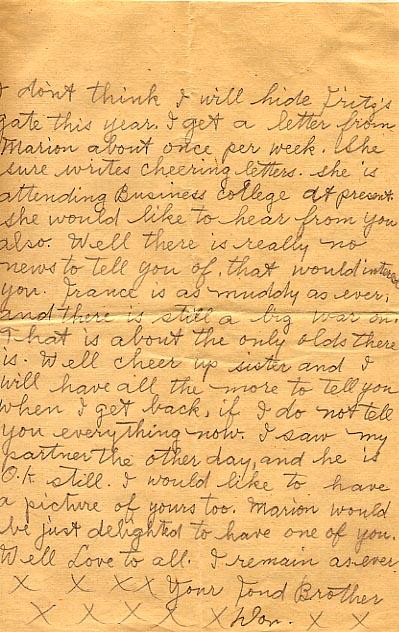 I don't think I will hide Fritz's
gate this year. I get a letter from
Marion about once per week. She
sure writes cheering letters. she is
attending Business college at present.
she would like to hear from you
also. Well there is really no
news to tell you of, that would interest
you. France is as muddy as ever,
and there is still a big war on.
That is about the only olds there
is. Well cheer up sister and I
will have all the more to tell you
when I get back, if I do not tell
you everything now. I saw my
partner the other day, and he is
O.K still. I would like to have
a picture of yours too. Marion would
be just delighted to have one of you.
Well Love to all. I remain as ever
X X X X Your Fond Brother
X X X X X X Wor. X X